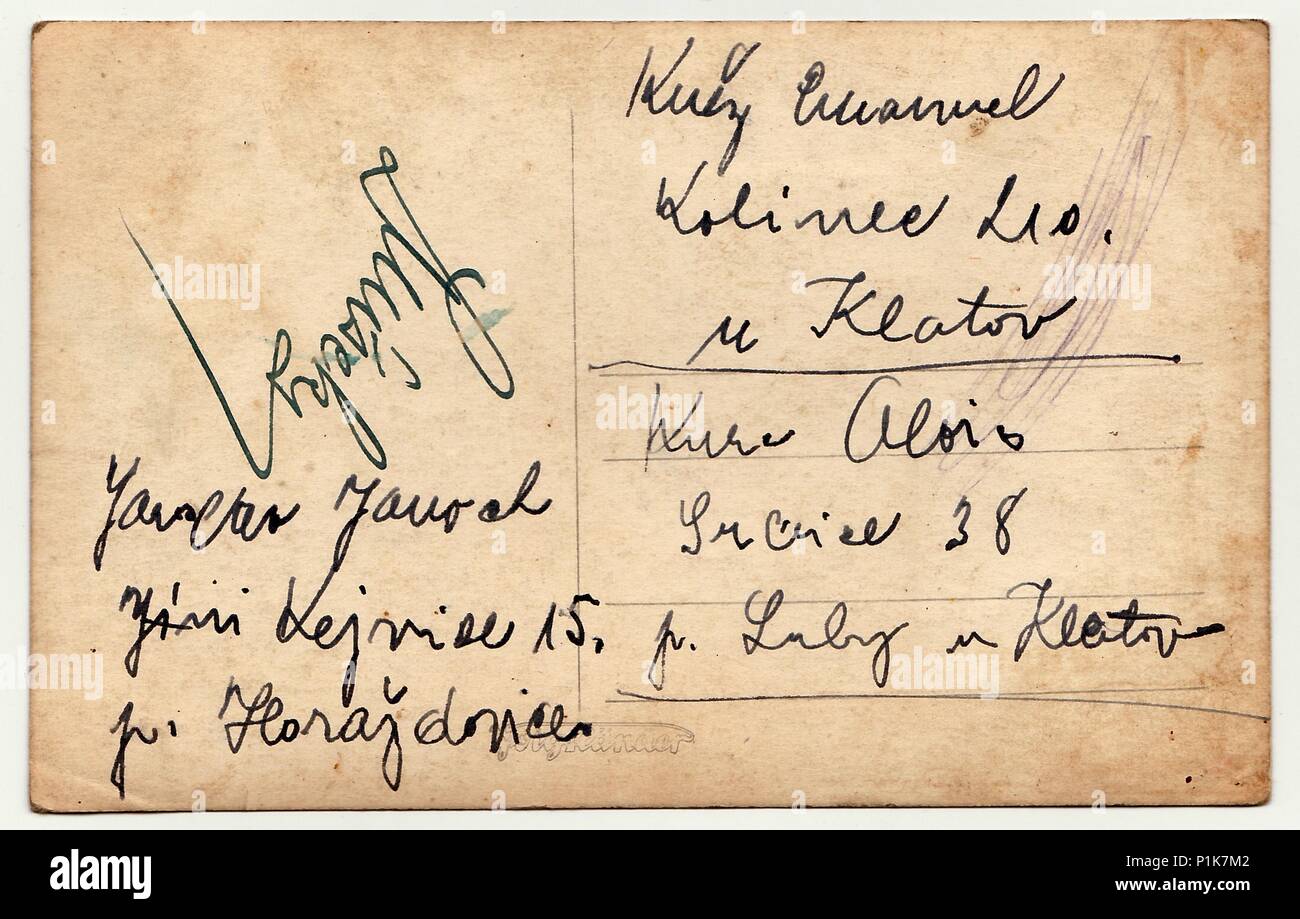 Jaroslav Janoch
Jiní Kejnice 15.
p. Horažďovice
Kužy Emanuel
Kolinec 210.
u Klatov
Kurc Alois
Srbice 38
p. Luby u Klatov
alamy
Image ID: P1K7M2
www.alamy.com